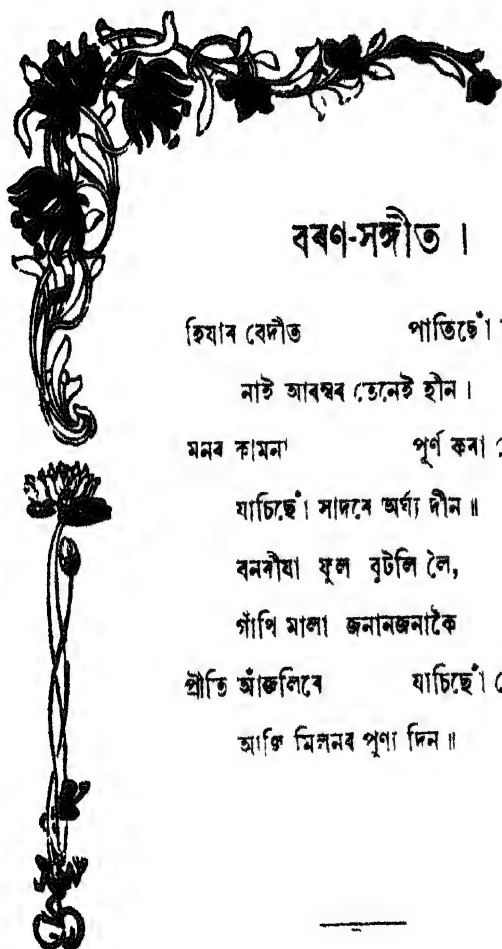 বৰণ-সঙ্গীত ।
হিযাৰ বেদীত পাতিছোঁ
নাই আৰম্বৰ তেনেই হীন ।
মনৰ কামনা পূৰ্ণ কৰা
যাচিছোঁ সাদৰে অৰ্ঘ্য দীন ॥
বনৰীযা ফুল বুটলি লৈ,
গাঁথি মালা জনানজনাকৈ
প্ৰীতি আঁজলিৰে যাচিছোঁ
আজি মিলনৰ পুণ্য দিন ॥